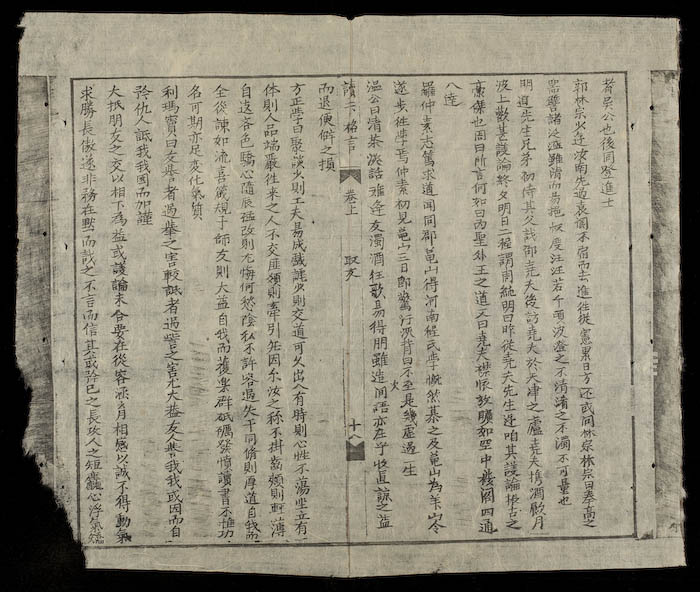 者吳公也後同登進士
郭林宗少遊汝南先過袁閬不宿而去進往從憲累日方还或問林宗林宗曰奉高之
器譬諸泛濫雖清而易挹叔度汪汪若千頃波澄之不清淆之不濁不可量也
明道先生兄弟初侍其父識邵堯夫後訪堯夫於天津之廬堯夫携酒飲月
波上歡甚議論終夕明日二程謂周純明曰昨從堯夫先生遊咱其議論振古之
豪傑也周曰所言何如曰內聖外王之道又曰堯夫襟懷放曠如空中樓閣四通
八達
羅仲素志篤求道聞同郡龜山得河南程氏學慨然慕之及龜山為蕭山令
遂步往學焉仲素初見龜山三日卽驚汗浹背曰不至是幾虛過一生
溫公曰清茶淡話難逢友濁酒狂歌易得朋雖造間語亦在乎收直諒之益
讀書格言 卷上 取友 十八
而退便僻之損
方正學曰聚談少則工夫易成戲謔少則交道可久出入有時則心性不蕩坐立有
体則人品端嚴往來之人不交 則牽引 因尔汝之称不掛齒頰則輕薄
自遠各色驕心隨辰猛改則尤悔何愁陰私不許容過失干同脩則厚道自我而
全從諫如流喜箴規于師友則大益自我而獲樂群砥礪發憤讀書不惟功
名可期亦足變化氣質
利瑪竇曰交譽者過譽之害較詆者過詈之害尤大益友人譽我我或因而自
矜仇人詆我我因而加謹
大抵朋友之交以相下為益或議論未合要在從容涵育相感以誠不得動氣
求勝長傲遂非務在默而識之不言而信其或矜己之長攻人之短麤心浮氣矯